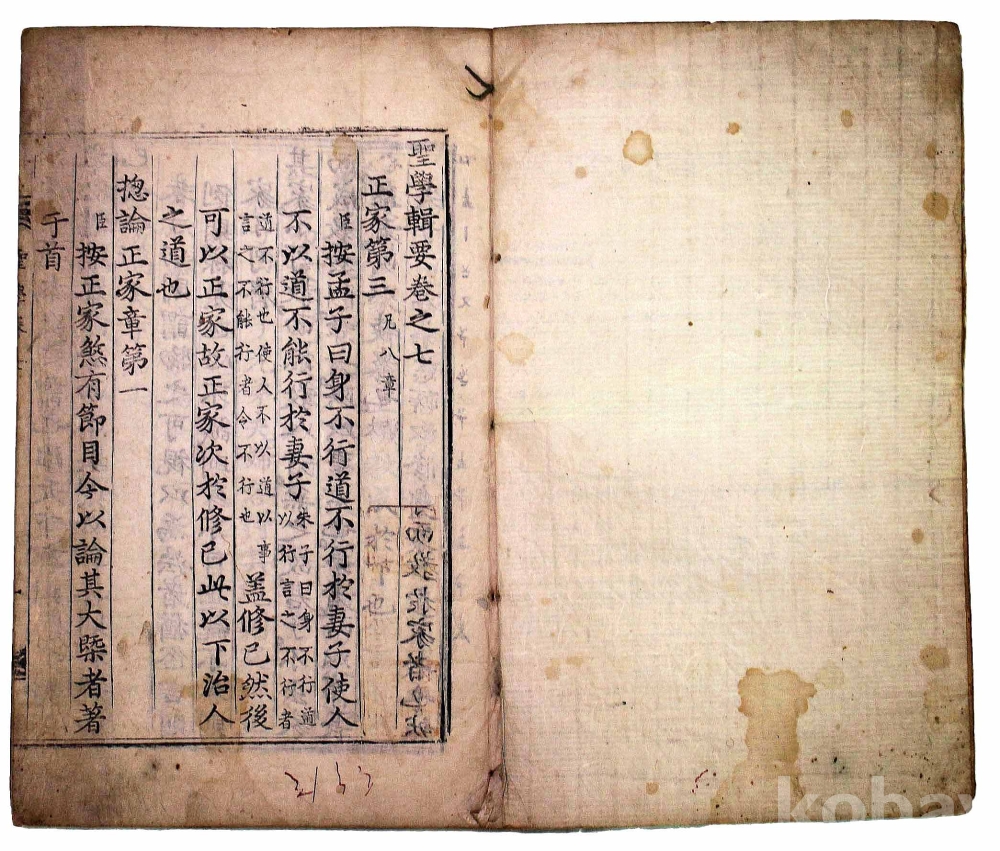 聖學輯要卷之七
正家第三 凡八章
臣按孟子曰身不行道不行於妻子使人
不以道不能行於妻子 朱子曰身不行道
以行言之不行者
道不行也使人不以道以事
言之不能行者令不行也 盖修己然後
可以正家故正家次於修己此以下治人
之道也
摠論正家章第一
臣按正家煞有節目今以論其大槩者著
于首
kobay